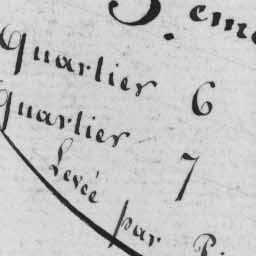 3.eme
Quartier 6
Quartier 7
Levée
par